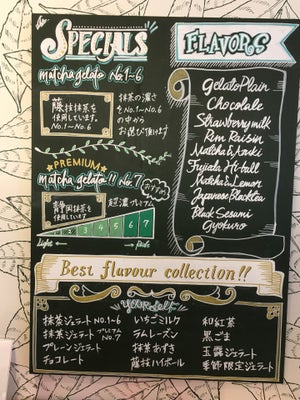 SPECIALS
matcha gelato No.1~6
藤枝抹茶を
使用しています。
No.1~No.6
抹茶の濃さ
をNo.1~No.6
の中から
お選び頂けます
PREMIUM
matcha gelato!! No.7
おすすめ!
静岡抹茶を
使用しています
超濃プレミアム
1 2 3 4 5 6 7
Light Rich
FLAVORS
Gelato Plain
Chocolate
Strawberry milk
Rum Raisin
Matcha & Azuki
Fujieda Hi-ball
Matcha & Lemon
Japanese Blacktea
Black Sesami
Gyokuro
Best flavour collection!!
yourself
抹茶ジェラート No.1~6
抹茶ジェラート プレミアム No.7
プレーンジェラート
チョコレート
いちごミルク
ラムレーズン
抹茶あずき
藤枝ハイボール
和紅茶
黒ごま
玉露ジェラート
季節限定ジェラート